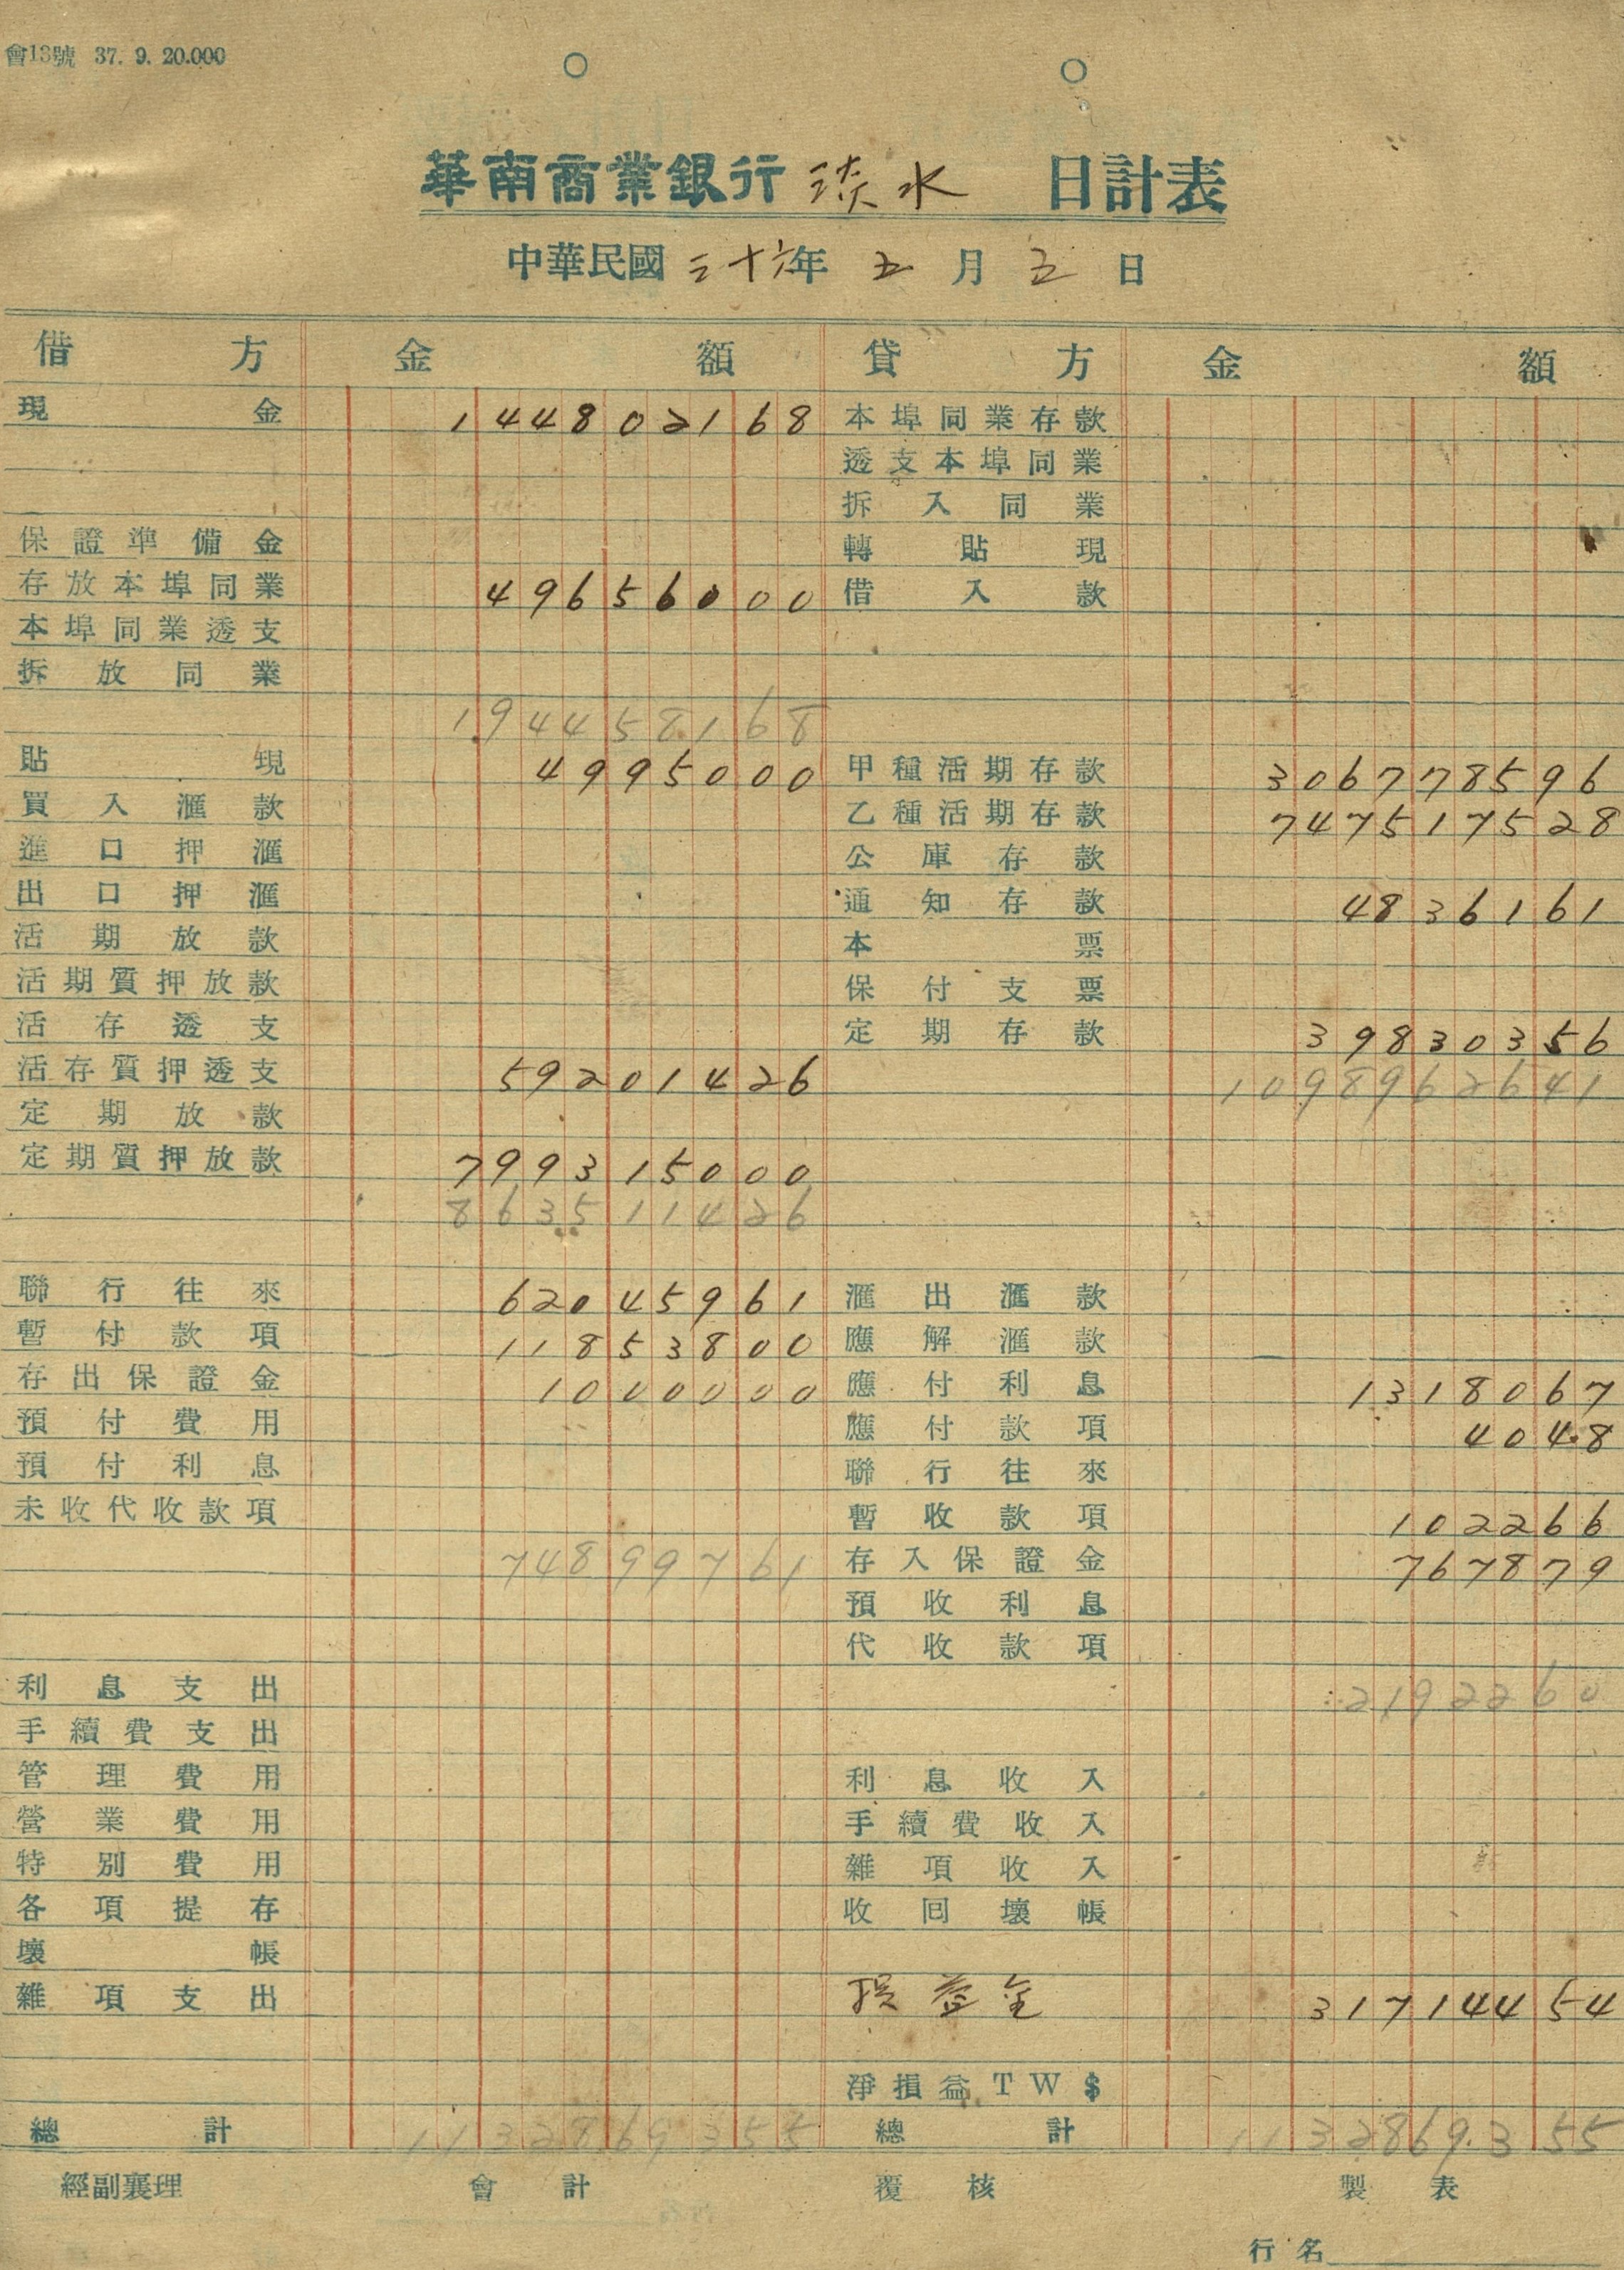 會13號 37. 9. 20.000
華南商業銀行 淡水 日計表
中華民國 三十六年 五月 五日
借方 金額 貸方 金額
現金 144802168 本埠同業存款
透支本埠同業
拆入同業
保證準備金 轉貼現
存放本埠同業 49656000 借入款
本埠同業透支
拆放同業
194458168
貼現 4995000 甲種活期存款 306778596
買入滙款 乙種活期存款 747517528
進口押滙 公庫存款
出口押滙 通知存款 4836161
活期放款 本票
活期質押放款 保付支票
活存透支 定期存款 39830356
活存質押透支 59201426 1098962641
定期放款
定期質押放款 799315000
863511426
聯行往來 62045961 滙出滙款
暫付款項 11853800 應解滙款
存出保證金 1000000 應付利息 1318067
預付費用 應付款項 4048
預付利息 聯行往來
未收代收款項 暫收款項 102266
74899761 存入保證金 767879
預收利息
代收款項
利息支出 2192260
手續費支出
管理費用 利息收入
營業費用 手續費收入
特別費用 雜項收入
各項提存 收回壞帳
壞帳
雜項支出 損益金 31714454
淨損益TW$
總計 1132869355 總計 1132869355
經副襄理 會計 覆核 製表
行名